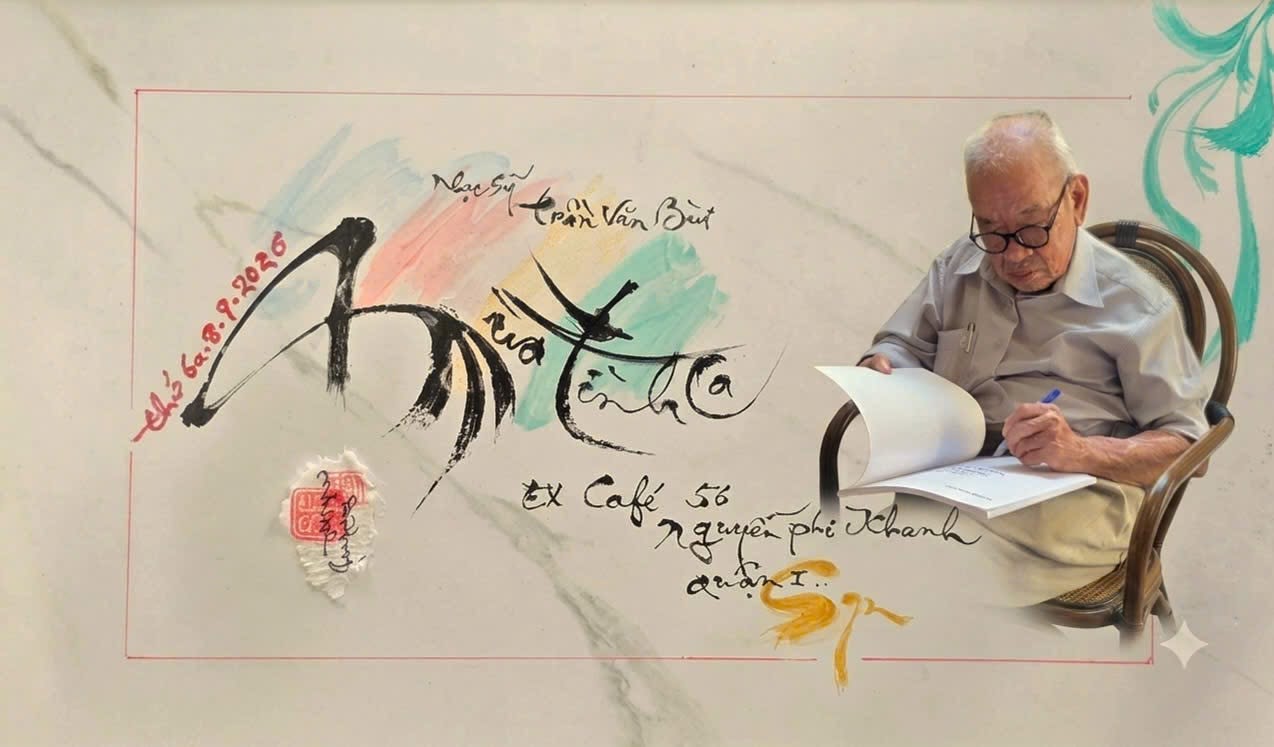 Nhạc sỹ
trần Văn Bùi
tình Ca
8.9.2026
EX Café 56
nguyễn phi Khanh
quận I..
Sgn